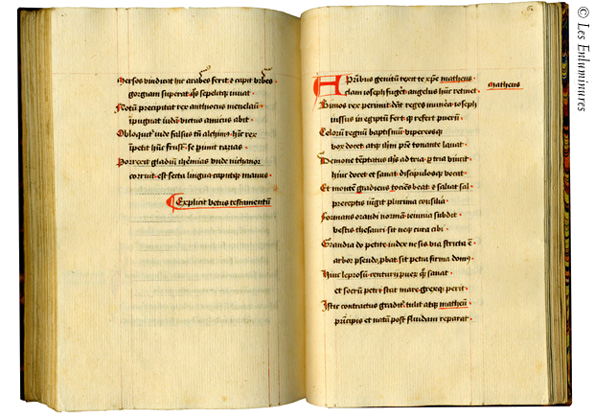 Persos vindicat hic arabes ferit & capit vrbes
gorgiam superat qs sepelit iuuat
Notū precipitat rex anthiocus menelaū
ipugnat iudā victus amicus abit
falsus alchimus rex
ipetit hūc se punit razias
Porrexit gladiū iude nichanor
corruit est secta lingua caputq manus
Explicit vetus testamentū
genitū texit te xp̄e matheus
clam ioseph fuget angelus hūc retinet
matheus
rex perimit regres ioseph
iussus in egyptū fert q̄ refert puerū
Celorū regnū baptismū
vox docet atq ihm pre tonante lauat
Demone teptatus ihs ad tria p tria vincit
hinc docet et sanat discipulos q vocat
Et montē gradiens docet & saluat sal
preceptis iugit plurima consilia
Formans orandi normā ieiunia subdit
thesauri sit cura cibi
Grandia do petite iudex ne sis via stricta ē
arbor pseudo pbat sit petra firma dom
Hinc leprosū centuri puer q̄ sanat
et socrū petri stat mare grexq perit
Iste contractus tulit atq matheū
principis et natū post fluidam reparat
© Les Enluminures